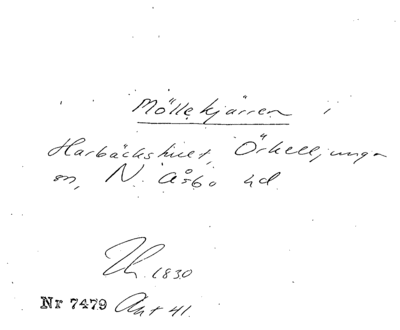 Möllekjärren i
Harbäckshult, Örkelljunga
sn, N. Åsbo hd.
1830
Nr 7479 Akt 41.